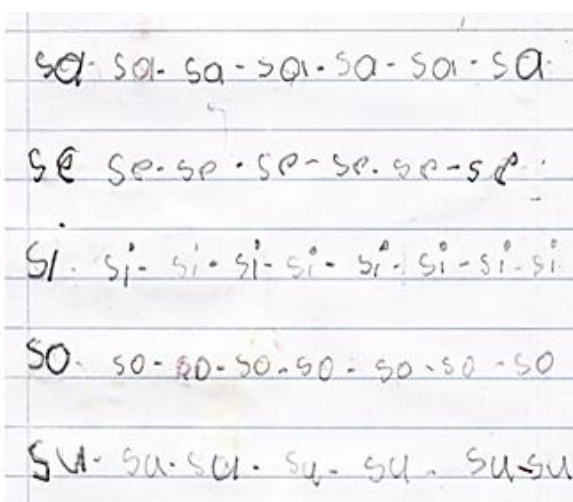 sa- sa- sa - sa - sa - sa - sa
se se - se - se - se - se - se
si - si - si - si - si - si - si - si - si
so - so - so - so - so - so - so - so
su - su - su - su - su - su - su